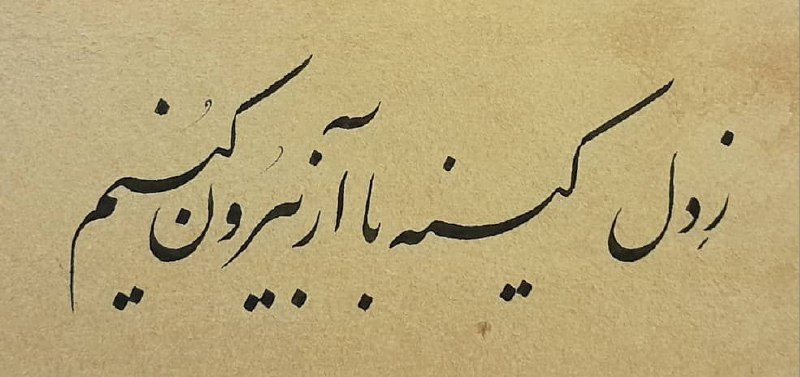 زِدل کینه با آز بیرُون کُنیم